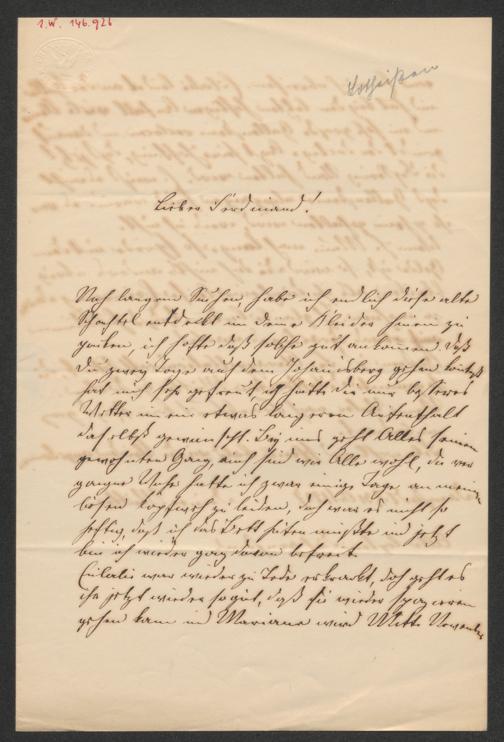 I.N. 146.926
Lieber Ferdinand!
Nach langem Suchen, habe ich endlich diese alte
Schachtel entdeckt um deine Kleider hinein zu
packen, ich hoffe daß solche gut ankomen. Daß
Du zwey Tage auf dem Johanisberg gehen kontest
hat mich sehr gefreut, ich hätte dir nur besseres
Wetter und ein etwas längeren Aufenthalt
daselbst gewünscht. Bey uns geht Alles seinen
gewohnten Gang, auch sind wir Alle wohl, die ver
gangne Woche hatte ich zwar einige Tage an meinem
bösen Kopfweh zu leiden, doch war es nicht so
heftig, daß ich das Bett hüten mußte und jetzt
bin ich wieder ganz davon befreit.
Eulalie war wieder zu Tode erkrankt, doch geht es
ihr jetzt wieder so gut, daß sie wieder spazieren
gehen kann und Mariane wird Mitte November